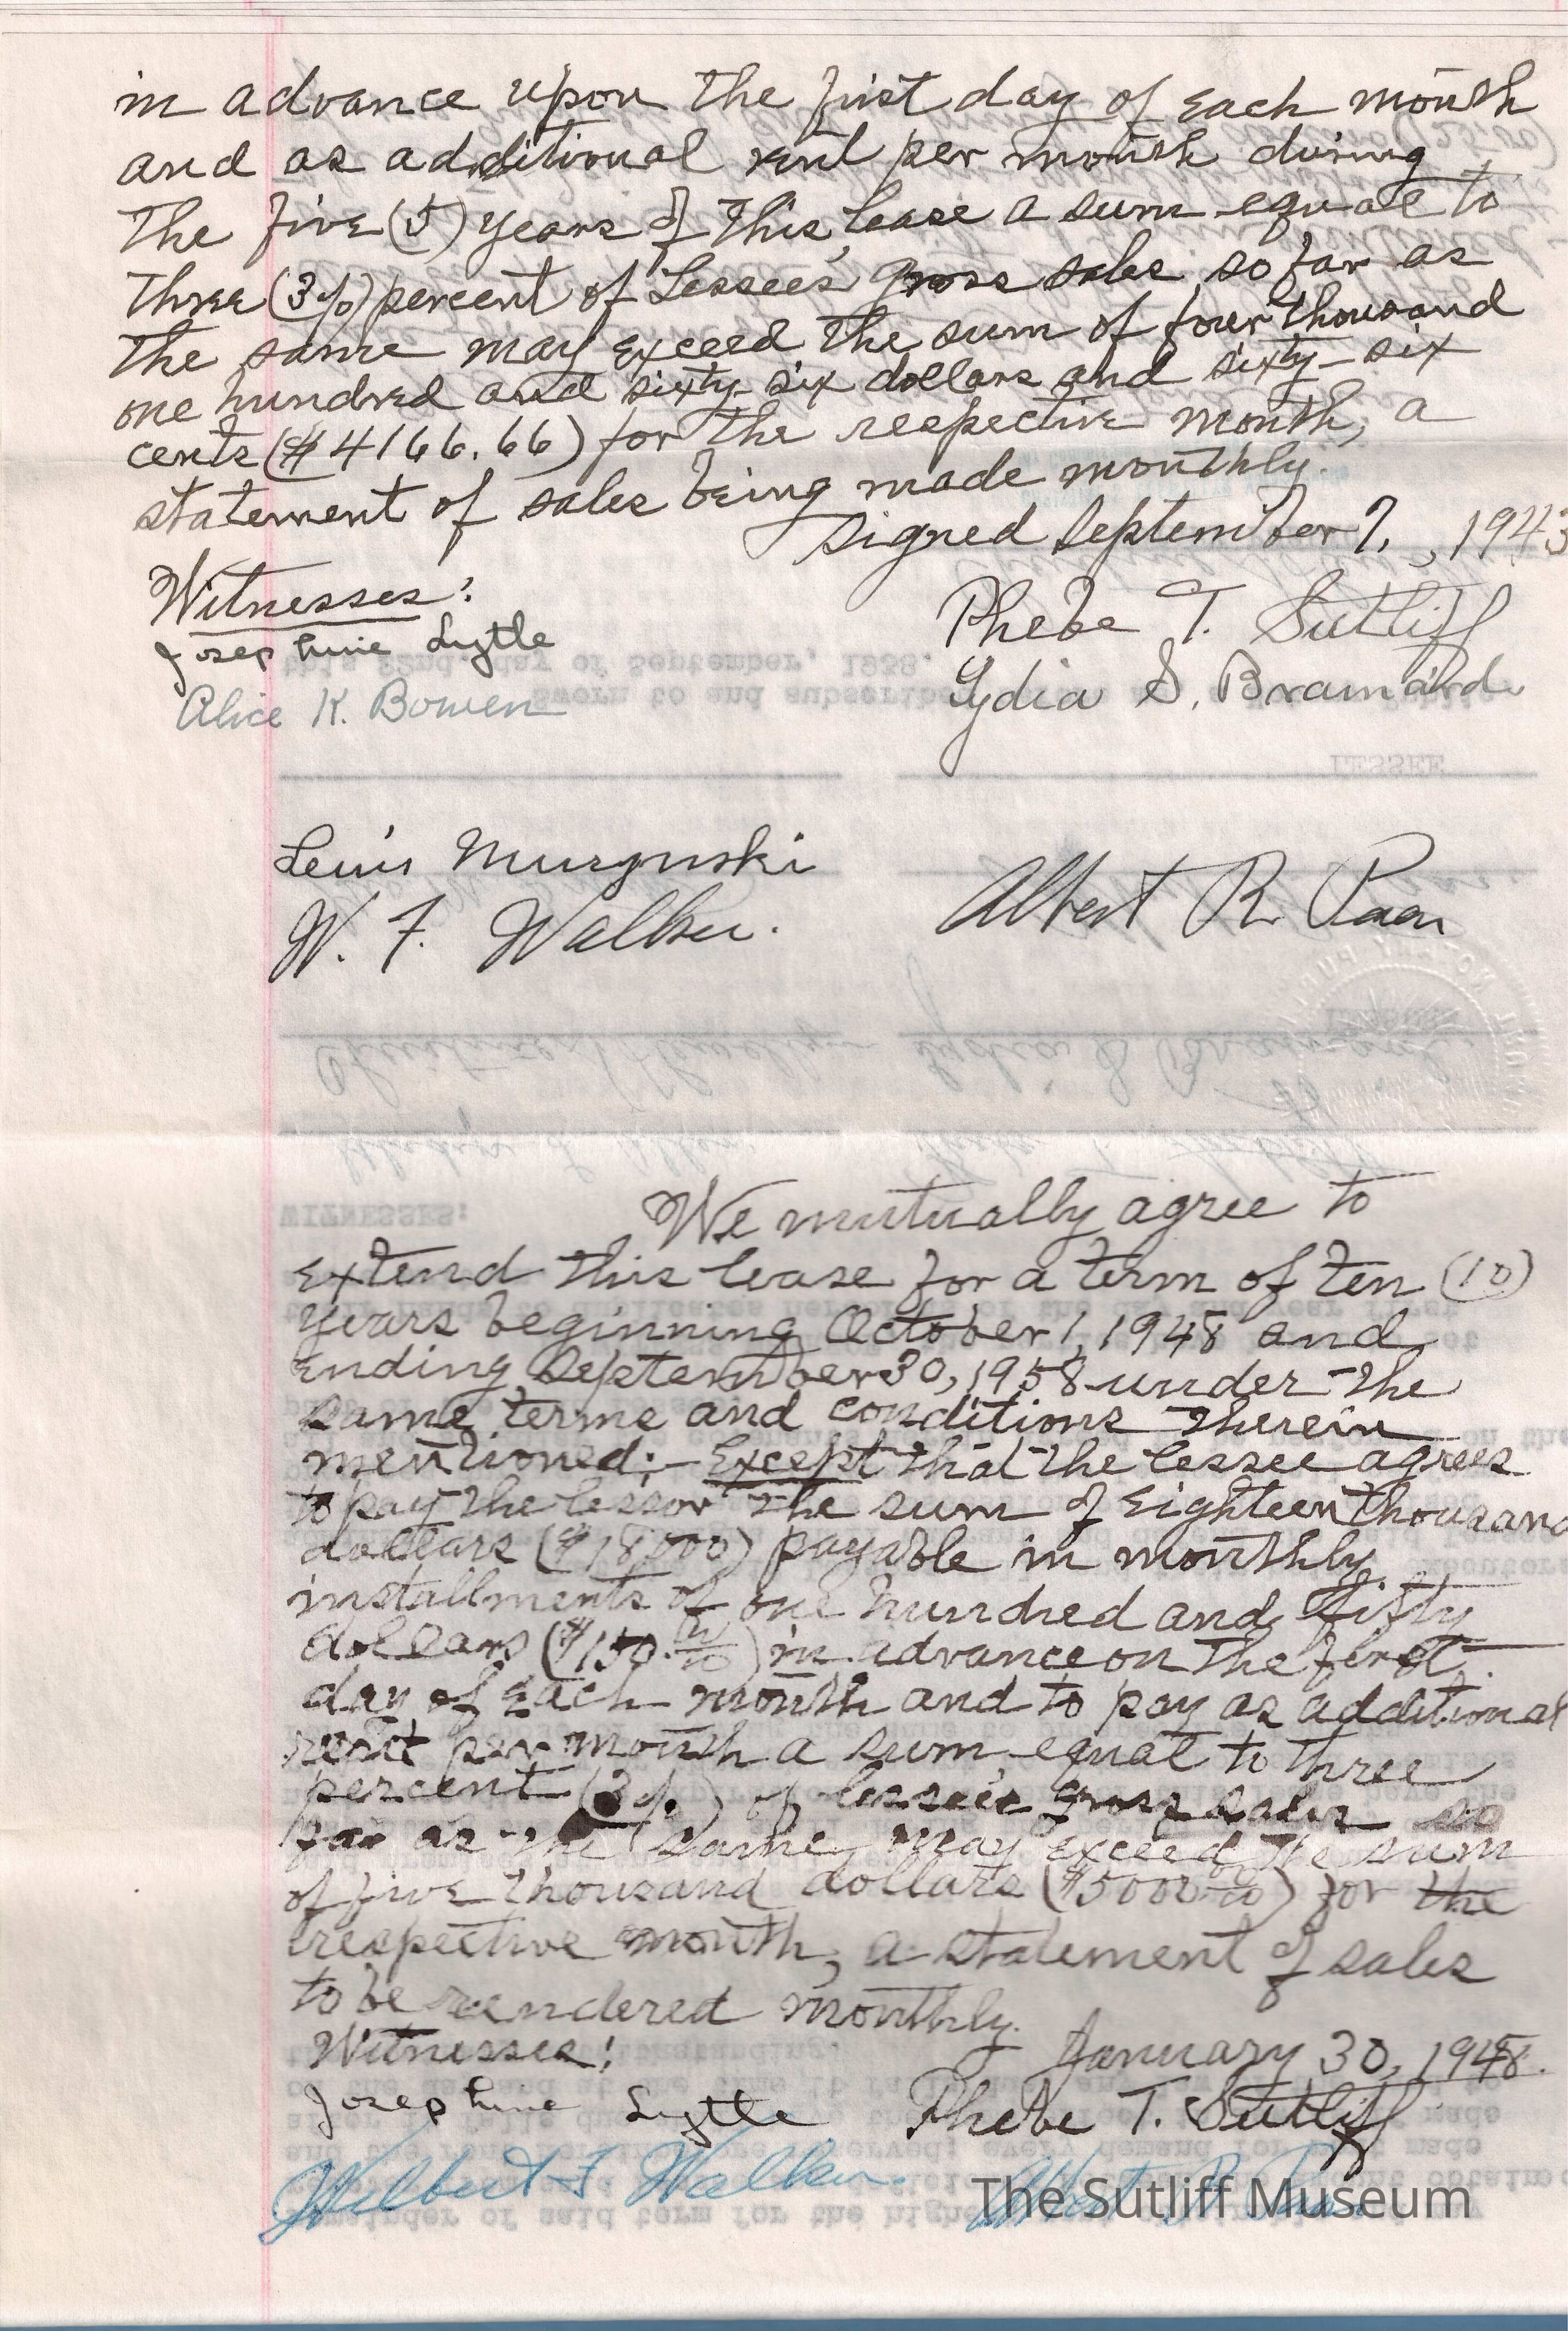 in advance upon the first day of each month
and as additional rent per month during
the five (5) years of this lease a sum equal to
three (3%) percent of Lessee's gross sales so far as
the same may exceed the sum of four thousand
one hundred and sixty-six dollars and sixty-six
cents ($4166.66) for the respective month, a
statement of sales being made monthly.
Signed September 7, , 1943
Witnesses:
Josephine Lytle
Phebe T. Sutliff
Alice K. Bowen
Lydia S. Brainard
Lewis
W. F. Walker.
Albert R.
We mutually agree to
extend this lease for a term of ten (10)
years beginning October 1, 1948 and
ending September 30, 1958 under the
same terms and conditions therein
mentioned:- Except that the lessee agrees
to pay the lessor the sum of Eighteen thousand
dollars ($18000) payable in monthly
installments of one hundred and fifty
dollars ($150.) in advance on the first
day of each month and to pay as additional
rent per month a sum equal to three
percent (3%) of lessee's gross sales so
far as the same may exceed the sum
of five thousand dollars ($5000) for the
respective month, a statement of sales
to be rendered monthly.
Witnesses:
January 30, 1948.
Josephine Lytle
Phebe T. Sutliff
Wilbert F Walker.
Albert R
The Sutliff Museum